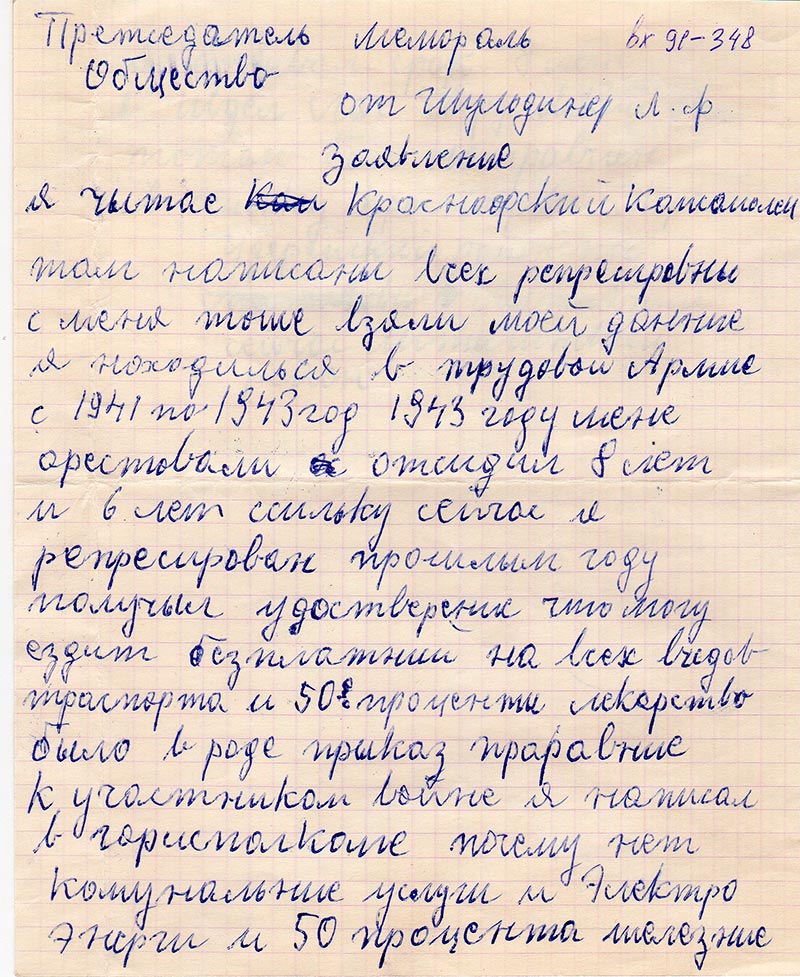 Претседатель мемораль вх 91-348
Общество
от Шульдинер Л. Ф.
Заявление
я чытас Красноярский Комсомолец
там написаны всех репресировны
с меня тоше взяли моей данние
я находилься в трудовой Армие
с 1941 по 1943 год 1943 году мене
арестовали отсидил 8 лет
и 6 лет ссильку сейчас я
репресирован прошлым году
получыл удостверение что могу
ездит безплатний на всех видов
траспорта и 50% проценти лекарство
было в роде приказ праравние
к участником войне я написал
в горисполкоме почему нет
комунальние услуги и Электро
Энерги и 50 процента железние